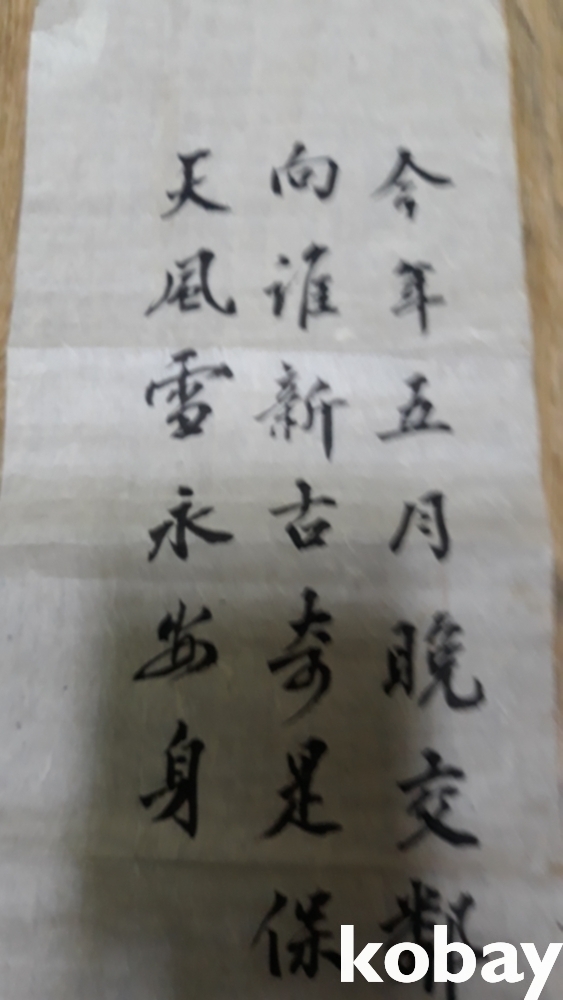 今年五月晚交
向誰新古奇是保
天風雪永安身
kobay